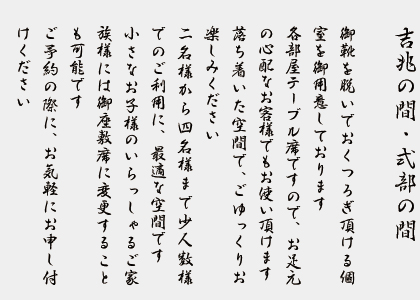 吉兆の間・式部の間
御靴を脱いでおくつろぎ頂ける個
室を御用意しております
各部屋テーブル席ですので、お足元
の心配なお客様でもお使い頂けます
落ち着いた空間で、ごゆっくりお
楽しみください
二名様から四名様まで少人数様
でのご利用に、最適な空間です
小さなお子様のいらっしゃるご家
族様には御座敷席に変更すること
も可能です
ご予約の際に、お気軽にお申し付
けください